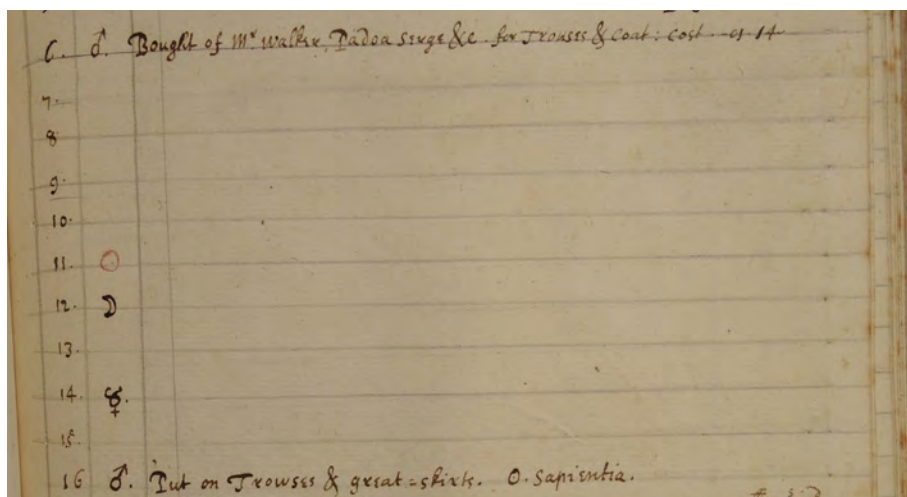 6. ♂. Bought of Mr Walker, Padoa Serge &c. for Trouses & Coat: cost
7.
8.
9.
10.
11. ☉
12. ☽
13.
14. ☿.
15.
16 ♂. Put on Trowses & great=skirts. O. Sapientia.